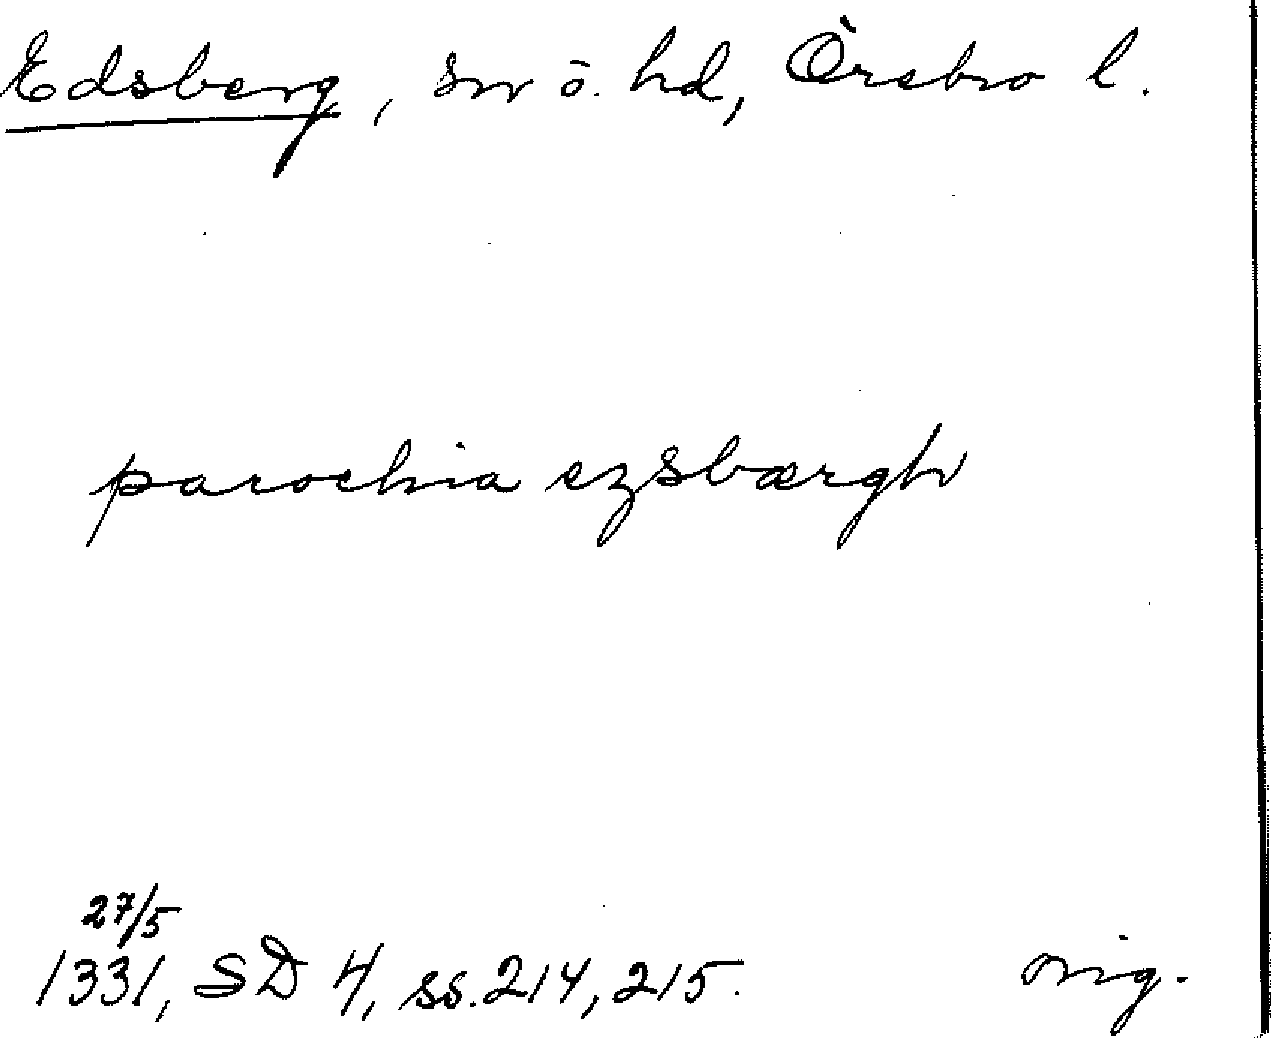 Edsberg, sn o. hd, Örebro l.
parochia ezsbærgh
27/5
1331, SD 4, ss. 214, 215. orig.